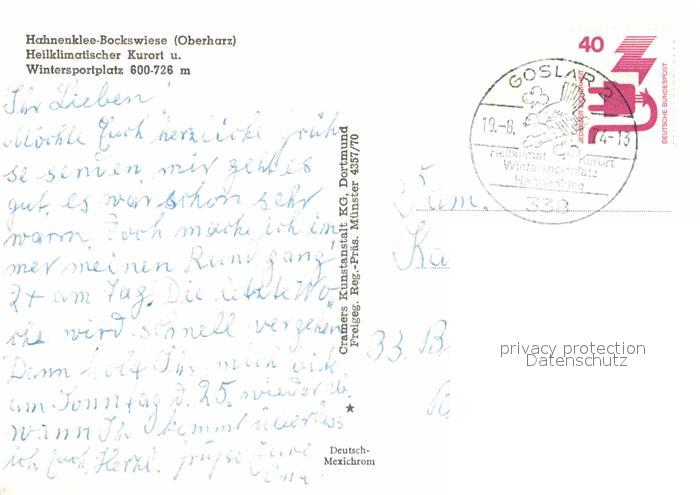 Hahnenklee-Bockswiese (Oberharz)
Heilklimatischer Kurort u.
Wintersportplatz 600-726 m
Ihr Lieben!
Möchte Euch herzliche Grüh
se senden, mir geht es
gut, es war schon sehr
warm. Doch mache ich im
mer meinen Rundgang
2x am Tag. Die letzte Wo
che wird schnell vergehen
Dann holt Ihr mich
am Sonntag d. 25. wieder ab.
wann Ihr kommt überlass
ich Euch. Herzl. Grüße Eure
Oma
Cramers Kunstanstalt KG, Dortmund
Freigeg. Reg.-Präs. Münster 4357/70
Deutsch-
Mexichrom
GOSLAR 2
19.-8. 74-13
Heilklimat. Kurort
Wintersportplatz
Hahnenklee
338
40
JEDERZEIT SICHERHEIT
DEUTSCHE BUNDESPOST
Fam.
33. B
privacy protection
Datenschutz